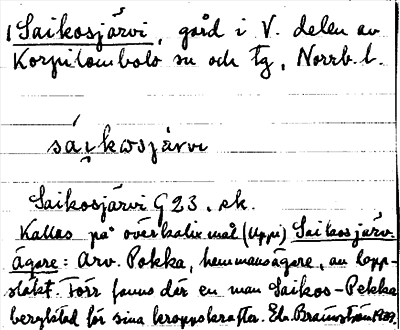 1 Saikosjärvi, gård i V. delen av
Korpilombolo sn och tg, Norrb. l.
sáikosjärvi
Saikosjärvi G 23. sk.
Kallas på överkalix mål (Uppi) Saikosjärv.
Ägare: Arv. Pokka, hemmansägare, av lapp-
släkt. Förr fanns där en man Saikos-Pekka
beryktad för sina kroppskrafter. Edv. Brännström